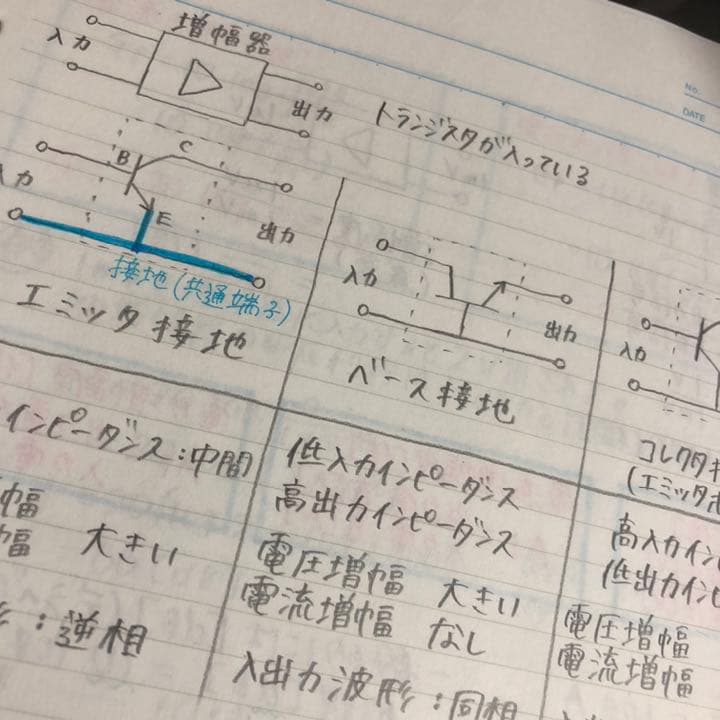 増幅器
入力
出力
トランジスタが入っている
No.
DATE
B
C
E
入力
出力
接地(共通端子)
エミッタ接地
入力
出力
ベース接地
入力
コレクタ
(エミッタ
インピーダンス:中間
幅
幅 大きい
:逆相
低入力インピーダンス
高出力インピーダンス
電圧増幅 大きい
電流増幅 なし
入出力波形:同相
高入力イン
低出力イン
電圧増幅
電流増幅